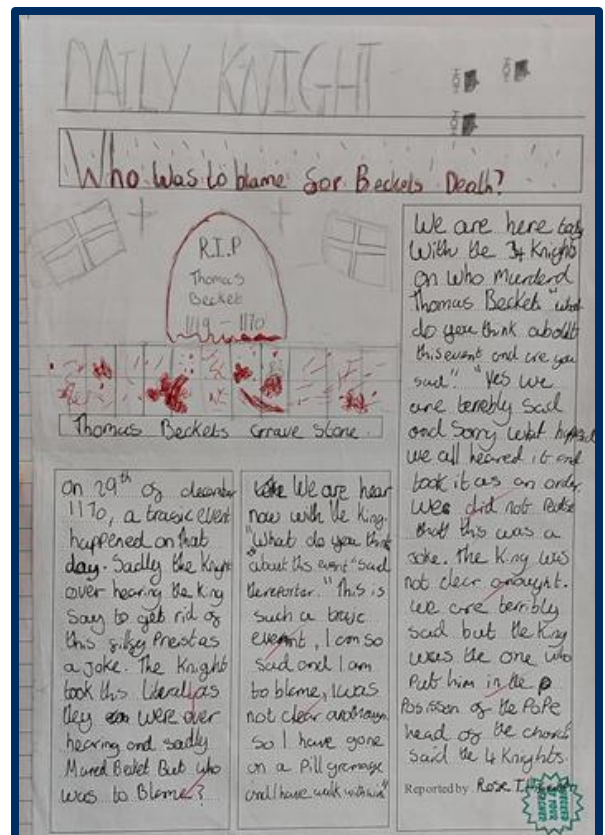 DAILY KNIGHT
Who was to blame for Beckets Death?
R.I.P
Thomas
Becket
1119 - 1170
Thomas Beckets Grave Stone.
On 29th of december
1170, a tragic event
happened on that
day. Sadly the Knight
over hearing the King
Say to get rid of
this Preist as
a joke. The Knight
took this literall as
they were over
hearing and sadly
Mured Becket But who
was to Blame?
We are hear
now with the King.
"What do you think
about this event" said
the reporter. "This is
such a trajic
event, I am so
sad and I am
to blame, I was
not clear
So I have gone
on a Pillgremage
and I have walk
We are here
With the 4 Knights
on who Murderd
Thomas Becket "what
do you think aboult
this event and are you
sad". "Yes we
are terribly sad
and Sorry what
we all heared it and
took it as an order
We did not
that this was a
joke. The King was
not clear anought.
We are terribly
sad but the King
was the one who
Put him in the
Posissen of the PoPe
head of the church
said the 4 Knights.
Reported by Rose